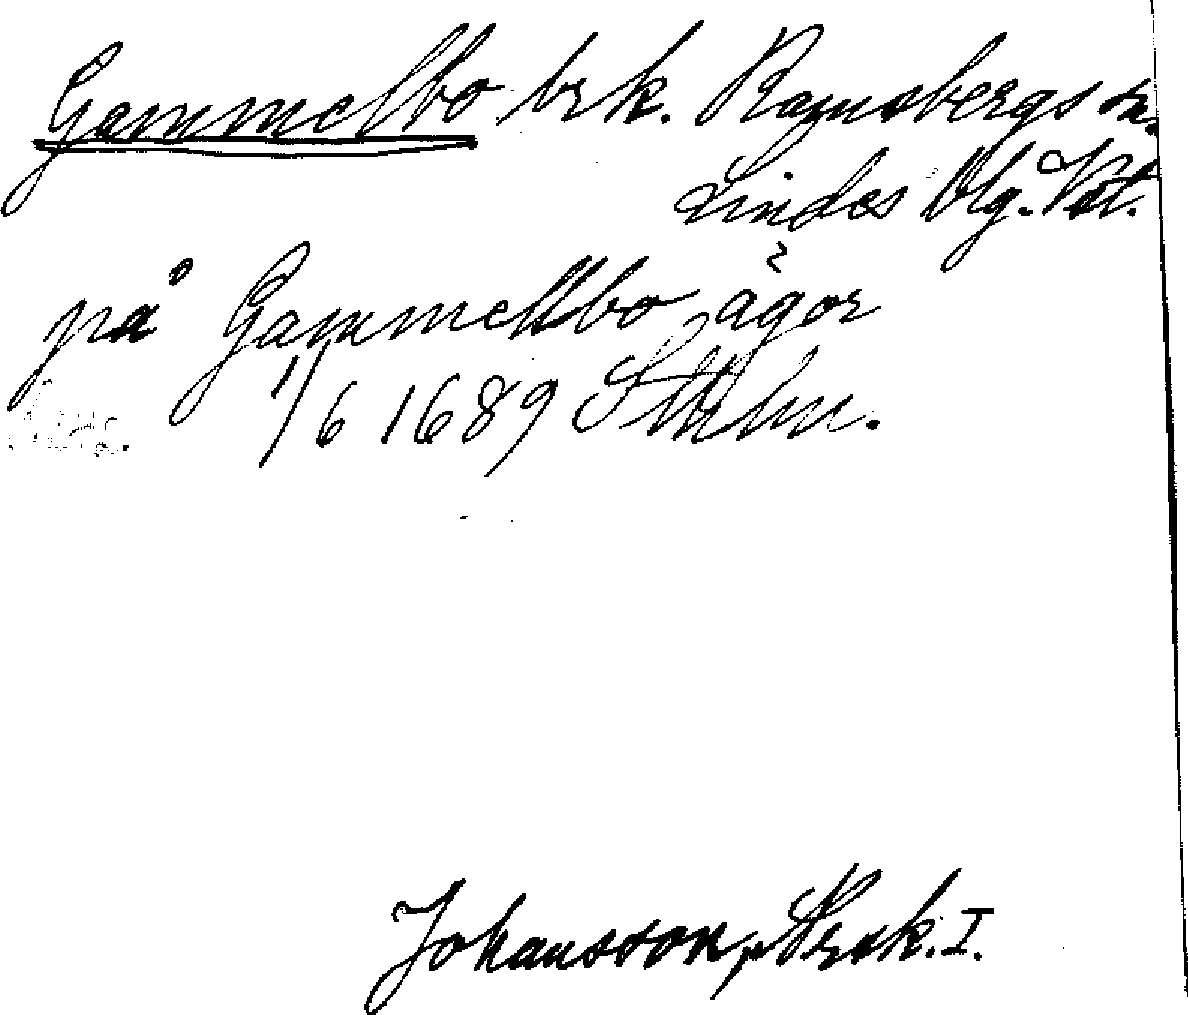 Gammelbo brk. Ramsbergs sn.
Lindes Blg. Vstm.
på Gammellbo ägor
1/6 1689 Sthlm.
Johansson, Nrsk. I.